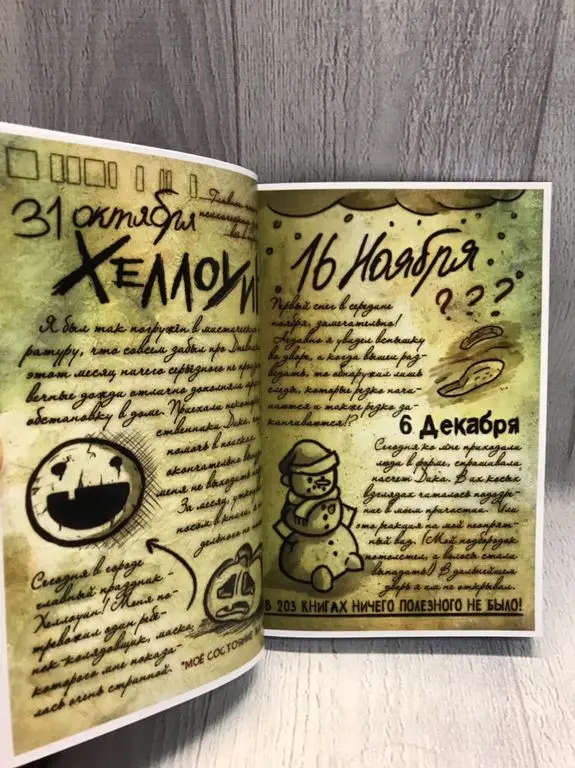 31 октября
Хеллоуи
Я был так погружён в мистическую
ратуру, что совсем забыл про Дневн
этот месяц ничего серьёзного не про
вечные дожди отлично дополняли
обстановку в доме. Приехали некото
ственники Дика,
помочь в поисках
окончательно
меня не выходить
За месяц, утк
носом в книги, я
дельного не
Сегодня в городе
главный праздник
Хеллоуин! Меня по-
тревожил один ребё-
нок-колядовщик, маска
которого мне показа-
лась очень странной.
"МОЁ СОСТОЯНИЕ
16 Ноября
???
Первый снег в середине
ноября, замечательно!
Недавно я увидел вспышку
во дворе, а когда вышел раз-
ведать, то обнаружил лишь
следы, которые резко начи-
наются и также резко за-
канчиваются!?
6 Декабря
Сегодня ко мне приходили
люди в форме, спрашивали
насчет Дика. В их косых
взглядах читалось подозре-
ние в моём причастии. Или
это реакция на мой неопрят-
ный вид. (Мой подбородок
потолстел, а волосы стали
выпадать) В дальнейшем
дверь я им не открывал.
В 203 КНИГАХ НИЧЕГО ПОЛЕЗНОГО НЕ БЫЛО!